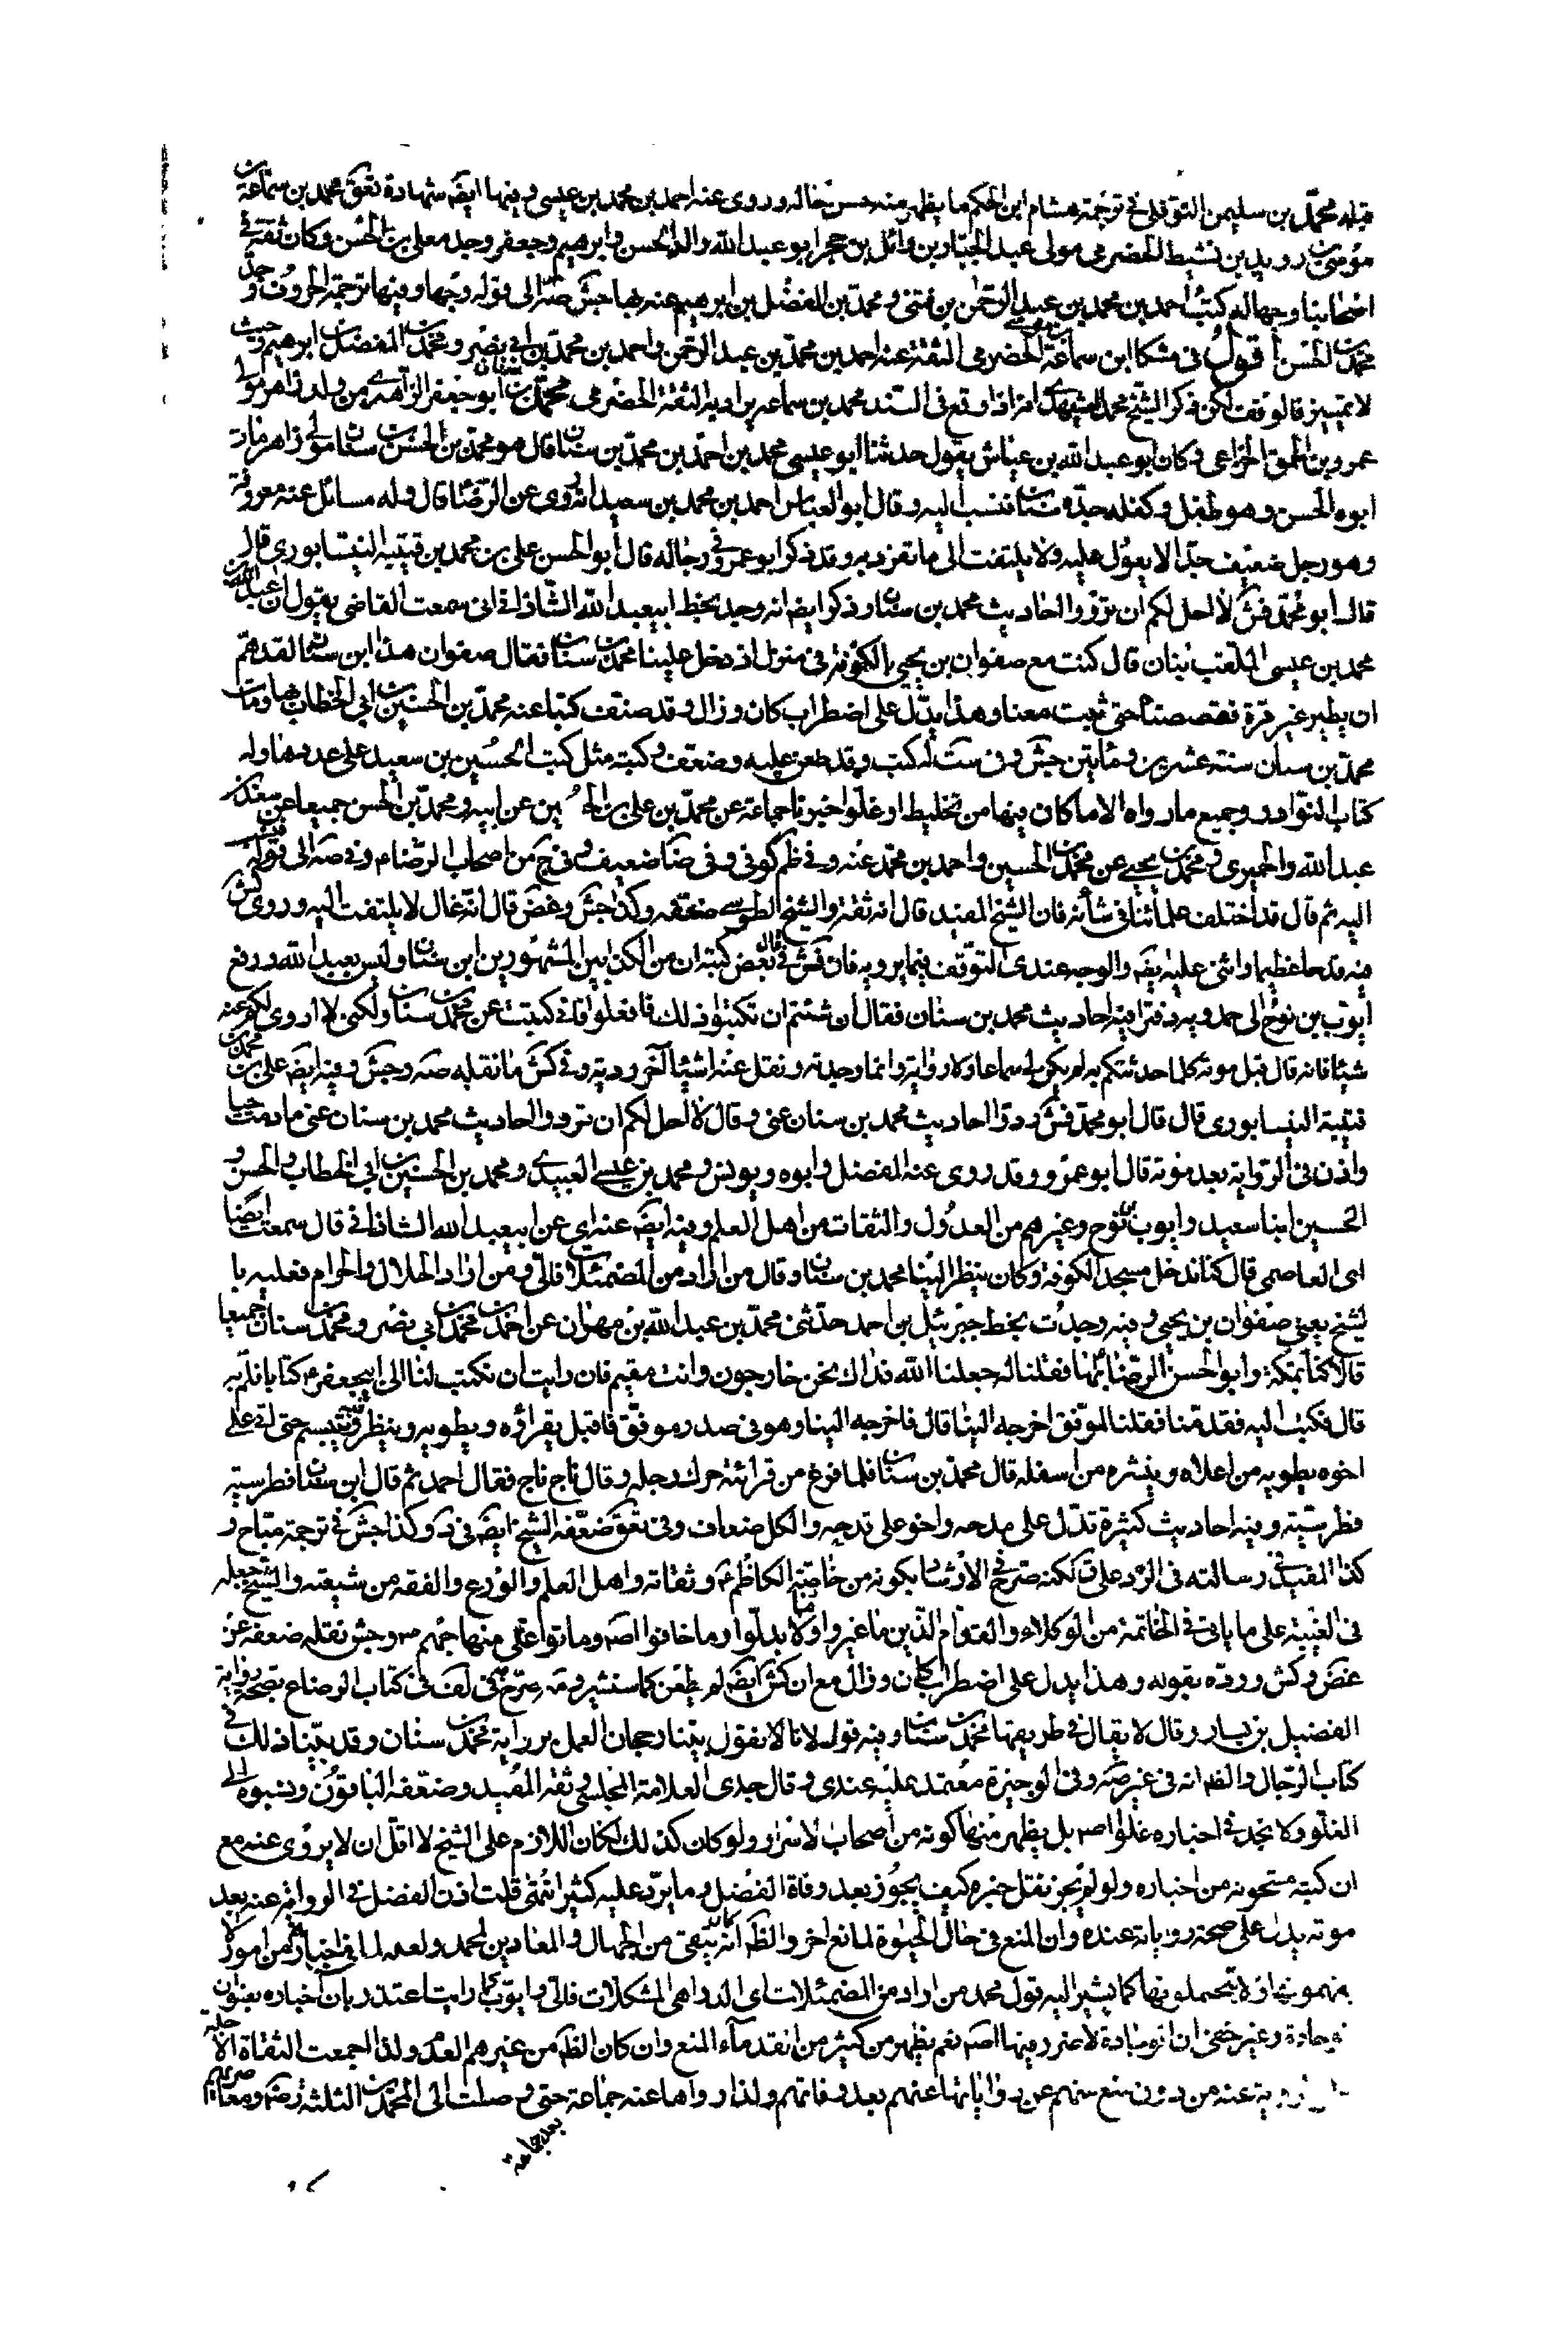 قبله محمد بن سليمن النوفلي في ترجمة هشام ابن الحكم ما يظهر منه حسن حاله وروى عنه احمد بن محمد بن عيسى وفيها ايضه شهادة تعق محمد بن سماعة بن
موسى بن رويد بن نشيط الحضرمي مولى عبد الجبار بن وائل بن حجر ابو عبد الله والد الحسن وابرهيم وجعفر وجد معلى بن الحسن وكان ثقة في
اصحابنا وجها له كتب احمد بن محمد بن عبد الرحمن بن فتنى ومحمد بن المفضل بن ابرهيم عنه بها جش صه الى قوله وجها وفيها ترجمة الحروف وجد
محمد بن الحسن اقول في مشكا ابن سماعة بن موسى الحضرمي الثقة عنه احمد بن محمد بن عبد الرحمن واحمد بن محمد بن ابي نصر ومحمد بن المفضل بن ابرهيم وحيث
لا تمييز فالوقف لكن ذكر الشيخ محمد الشهيدي انه اذا وقع في السند محمد بن سماعه يراد به الثقة الحضرمي محمد بن سنان ابو جعفر الزاهري من ولد زاهر مولى
عمرو بن الحمق الخزاعي وكان ابو عبد الله بن عياش يقول حدثنا ابو عيسى محمد بن احمد بن محمد بن سنان قال هو محمد بن الحسن بن سنان مولى زاهر مات
ابوه الحسن وهو طفل وكفله جده سنان فنسب اليه وقال ابو العباس احمد بن محمد بن سعيد انه روى عن الرضا قال وله مسائل عنه معروفة
وهو رجل ضعيف جدا لا يعول عليه ولا يلتفت الى ما تفرد به وقد ذكر ابو عمرو في رجاله قال ابو الحسن علي بن محمد بن قتيبة النيشابوري قال
قال ابو محمد فش لا احل لكم ان ترووا احاديث محمد بن سنان وذكر ايضا انه وجد بخط ابيعبد الله الشاذاني اني سمعت القاضي يقول ان عبد الله بن
محمد بن عيسى الملقب ببنان قال كنت مع صفوان بن يحيى بالكوفة في منزل اذ دخل علينا محمد بن سنان فقال صفوان هذا ابن سنان لقد هم
ان يطير غير مرة فقصصناه حتى ثبت معنا وهذا يدل على اضطراب كان وزال وقد صنف كتبا عنه محمد بن الحسين بن ابي الخطاب بها ومات
محمد بن سنان سنة عشرين ومأتين جش وفي ست له كتب وقد طعن عليه وضعف وكتبه مثل كتب الحسين بن سعيد على عددها وله
كتاب النوادر وجميع ما رواه الا ما كان فيها من تخليط او غلو اخبرنا جماعة عن محمد بن علي بن الحسين عن ابيه ومحمد بن الحسن جميعا عن سعد و
عبد الله والحميري ومحمد بن يحيى عن محمد بن الحسين واحمد بن محمد عنه وفي ظم كوفي وفي ضا ضعيف وفي ج من اصحاب الرضا م وفي صه الى قوله فنسب
اليه ثم قال قد اختلف علمائنا في شأنه فان الشيخ المفيد قال انه ثقة والشيخ الطوسي ضعفه وكذا جش وغض قال انه غال لا يلتفت اليه وروى كش
فيه قدحا عظيما واثنى عليه ايضه والوجه عندي التوقف فيما يرويه فان فش قال في بعض كتبه ان من الكذابين المشهورين ابن سنان وليس بعبد الله ورفع
ايوب بن نوح الى حمدويه دفترا فيه احاديث محمد بن سنان فقال ان شئتم ان تكتبوا ذلك فافعلوا فاني كتبت عن محمد بن سنان ولكني لا اروي لكم عنه
شيئا فانه قال قبل موته كلما حدثتكم به لم يكن لي سماعا ولا رواية وانما وجدته ونقل عنه اشياء اخر ردية وفي كش ما نقله صه وجش وفيه ايضه علي بن محمد بن
قتيبة النيسابوري قال قال ابو محمد فش ردوا احاديث محمد بن سنان عني وقال لا احل لكم ان ترووا احاديث محمد بن سنان عني ما دمت حيا
واذن في الرواية بعد موته قال ابو عمرو وقد روى عنه الفضل وابوه ويونس ومحمد بن عيسى العبيدي ومحمد بن الحسين بن ابي الخطاب والحسن و
الحسين ابنا سعيد وايوب بن نوح وغيرهم من العدول والثقات من اهل العلم وفيه ايضه عنه اي عن ابيعبد الله الشاذاني قال سمعت ايضا
ابى العاصمي قال كنا ندخل مسجد الكوفة وكان ينظر الينا محمد بن سنان وقال من اراد من المضمئلات فالي ومن اراد الحلال والحرام فعليه با
لشيخ يعني صفوان بن يحيى وفيه وجدت بخط جبرئيل بن احمد حدثني محمد بن عبد الله بن مهران عن احمد بن محمد بن ابي نصر ومحمد بن سنان جميعا
قالا كنا بمكة وابو الحسن الرضا بها فقلنا له جعلنا الله فداك نحن خارجون وانت مقيم فان رايت ان تكتب لنا الى ابيجعفر م كتابا نلم به
قال فكتب اليه فقدمنا فقلنا لموفق اخرجه الينا قال فاخرجه الينا وهو في صدر موفق فاقبل يقراؤه ويطويه وينظر فيه ويتبسم حتى اتى على
اخره يطويه من اعلاه وينشره من اسفله قال محمد بن سنان فلما فرغ من قرائته حرك رجله وقال ناج ناج فقال احمد ثم قال ابن سنان فطرسيه
فطرسيه وفيه احاديث كثيرة تدل على مدحه واخو على قدحه والكل ضعاف وفي تعق ضعفه الشيخ ايضه في يه وكذا جش في ترجمة مياح و
كذا المفيد في رسالته في الرد على ق لكنه صرح في الارشاد بكونه من خاصة الكاظم م وثقاته واهل العلم والورع والفقه من شيعته والشيخ جعله
في الغيبة على ما ياتي في الخاتمة من الوكلاء والقوام الذين ما غيروا ولا بدلوا وما خانوا اصه وماتوا على منهاجهم م وجش نقله ضعفه عن
عض وكش ورده بقوله وهذا يدل على اضطراب كان وزال مع ان كش ايضه لم يطعن كما سنشير وصه صرح في لف في كتاب الرضاع بصحة رواية
الفضيل بن يسار وقال لا يقال في طريقها محمد بن سنان وفيه قول لانا لا نقول بينا رجحان العمل برواية محمد بن سنان وقد بينا ذلك في
كتاب الرجال والظه انه في غير صه وفي الوجيزة معتمد عليه عندي وقال جدي العلامة المجلسي وثقه المفيد وضعفه الباقون ونسبوه الى
الغلو ولا نجد في اخباره غلوا اصه بل يظهر منها كونه من اصحاب الاسرار ولو كان كذلك لكان اللازم على الشيخ لا اقل ان لا يروى عنه مع
ان كتبه مشحونه من اخباره ولو لم يجز نقل خبره كيف يجوز بعد وفاة الفضل وما يرد عليه كثير انتهى قلت اذن الفضل في الرواية عنه بعد
موته يدل على صحة رواياته عنده وان المنع في حال الحيوة لمانع اخر والظه انه كان يتقى من الجهال والمعاندين لمحمد ولعله لما في اخباره من امور لا
يفهمونها ولا يتحملونها كما يشير اليه قول محمد من اراد من المضمئلات اي الدواهي المشكلات فالي وايوب كما رايت اعتذر بان اخباره بعنوان
وجادة وغير خفي ان الوجادة لا ضرر فيها اصه نعم يظهر من كثير من القدماء المنع وان كان الظه من غيرهم العدم ولذا اجمعت الثقاة الاجلة
عنه من دون منع منهم عن رواياتها عنهم بعد وفاتهم ولذا رواها عنه جماعة حتى وصلت الى المحمدين الثلثة رضه ومعا
بعد جماعة